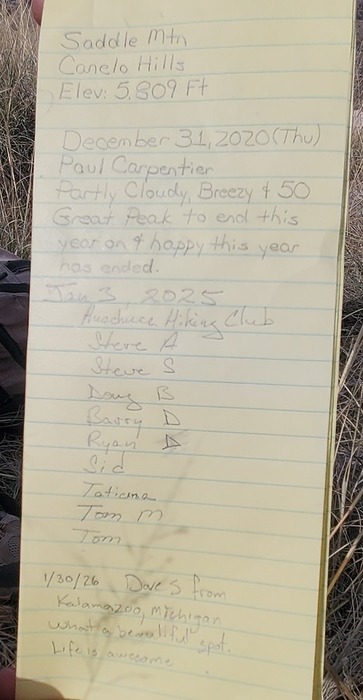 Saddle Mtn
Canelo Hills
Elev: 5,809 Ft
December 31, 2020 (Thu)
Paul Carpentier
Partly Cloudy, Breezy & 50
Great Peak to end this
year on & happy this year
has ended.
Jan 3, 2025
Huachuca Hiking Club
Steve A
Steve S
Doug B
Barry D
Ryan D
Sid
Tatiana
Tom M
Tom
1/30/26 Dave S from
Kalamazoo, Michigan
What a beautiful spot.
Life is awesome